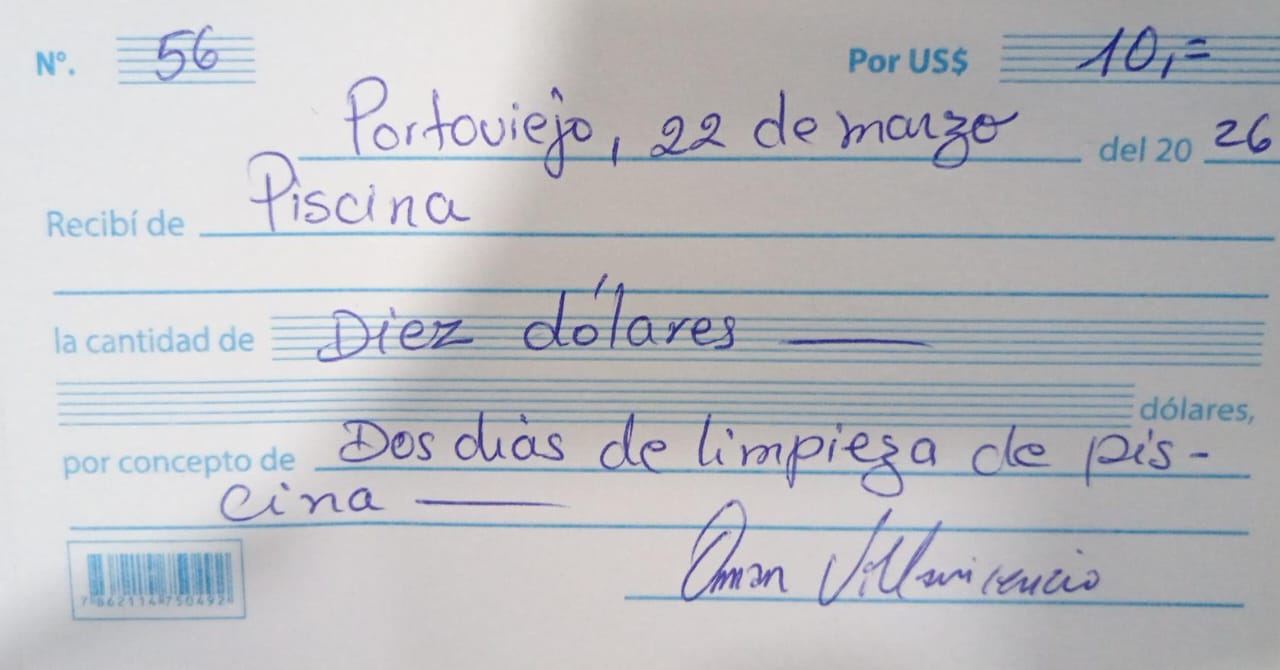 Nº. 56 Por US$ 10,=
Portoviejo, 22 de marzo del 20 26
Recibí de Piscina
la cantidad de Diez dólares
dólares,
por concepto de Dos días de limpieza de pis-
cina
Oman Villavicencio
7862114750492